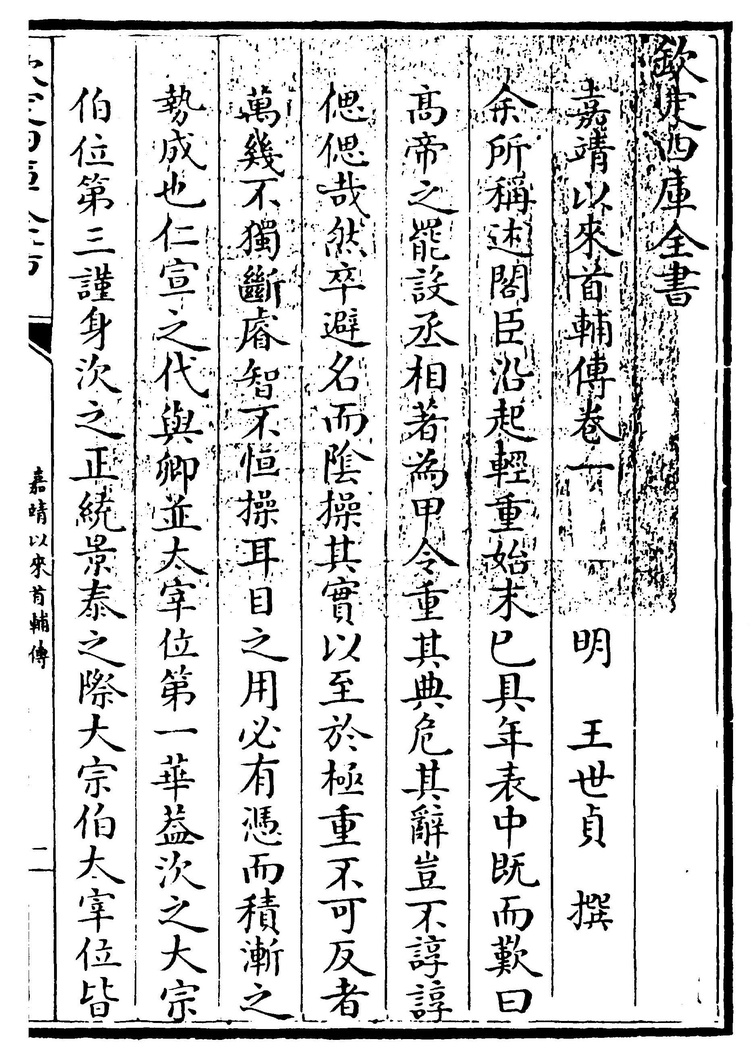 欽定四庫全書
嘉靖以來首輔傳卷一　明　王世貞　撰
余所稱述閣臣沿起輕重始末已具年表中既而歎曰
髙帝之罷設丞相著為甲令重其典危其辭豈不諄諄
偲偲哉然卒避名而陰操其實以至於極重不可反者
萬幾不獨斷睿智不恒操耳目之用必有憑而積漸之
勢成也仁宣之代與卿並太宰位第一華葢次之大宗
伯位第三謹身次之正統景泰之際大宗伯太宰位皆
嘉靖以來首輔傳
二